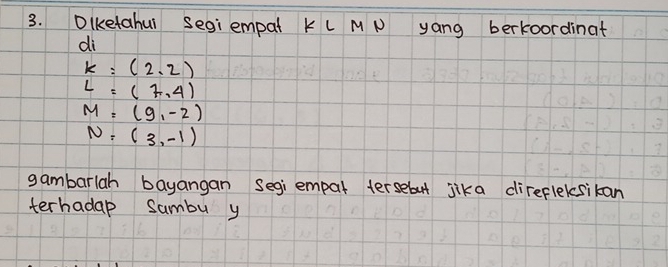 3. Diketahui segi empat K L M N yang berkoordinat
di
K = (2,2)
L = (7,4)
M = (9,-2)
N = (3,-1)
gambarlah bayangan segi empat tersebut jika direfleksikan
terhadap sambu y